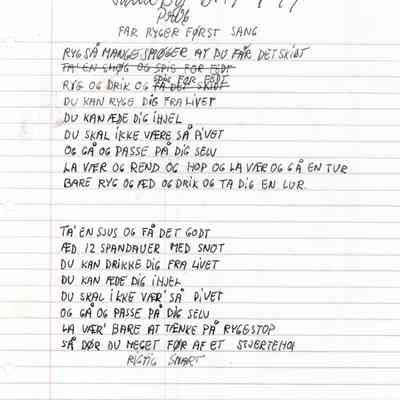 FAR RYGER FØRST SANG
RYG SÅ MANGE SMØGER AT DU FÅR DET SKIDT
TA' EN SMØG OG SPIS FOR FEDT
SPIS FOR FEDT
RYG OG DRIK OG FÅ DET SKIDT
DU KAN RYGE DIG FRA LIVET
DU KAN ÆDE DIG IHJEL
DU SKAL IKKE VÆRE SÅ PIVET
OG GÅ OG PASSE PÅ DIG SELV
LA VÆR OG REND OG HOP OG LA VÆR OG GÅ EN TUR
BARE RYG OG ÆD OG DRIK OG TA DIG EN LUR.
TA' EN SJUS OG FÅ DET GODT
ÆD 12 SPANDAUER MED SNOT
DU KAN DRIKKE DIG FRA LIVET
DU KAN ÆDE DIG IHJEL
DU SKAL IKKE VÆR' SÅ PIVET
OG GÅ OG PASSE PÅ DIG SELV
LA VÆR' BARE AT TÆNKE PÅ RYGESTOP
SÅ DØR DU MEGET FØR AF ET
RIGTIG SMART